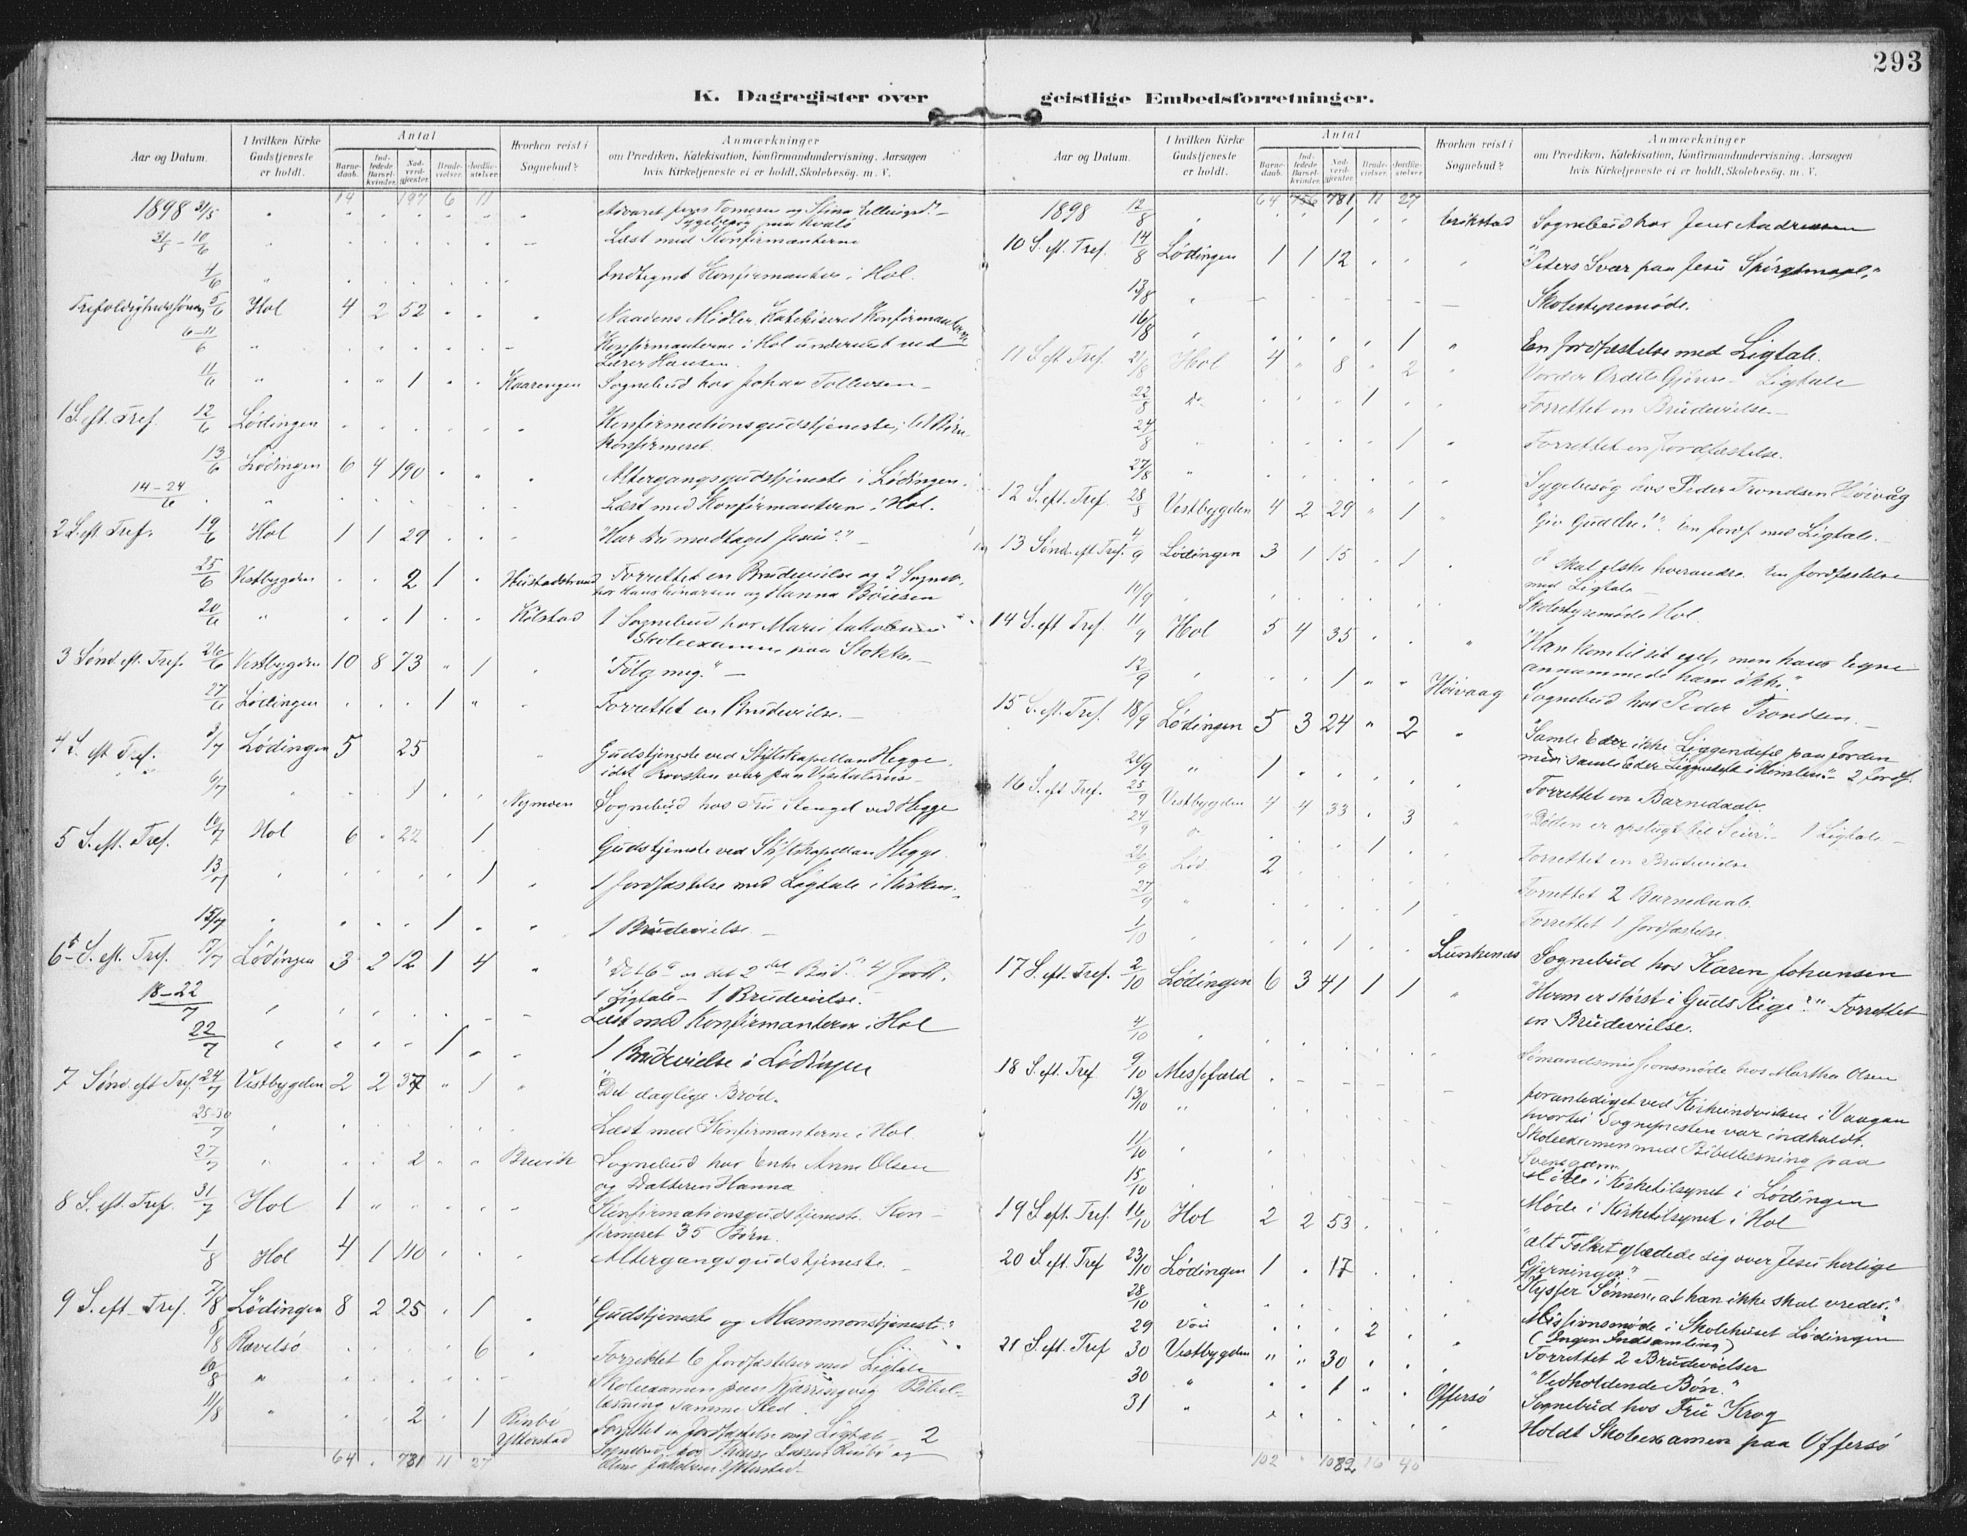 293
K. Dagregister over geistlige Embedsforretninger.
Aar og Datum. | I hvilken Kirke Gudstjeneste er holdt. | Antal | Barnedaab. | Indledede Barselkvinder. | Nadverdgjester. | Brudevielser. | Jordfæstelser. | Hvorhen reist i Sognebud? | Anmærkninger om Prædiken, Katekisation, Konfirmandundervisning. Aarsagen hvis Kirketjeneste ei er holdt, Skolebesøg. m. V.
14 197 6 11
1898 31/5
31/5 - 10/6 Læst med Konfirmanterne
7/6 Indtegnet Konfirmanter i Hol.
Trefoldighedssønd. 5/6 Hol 4 2 52 Naadens Midler. Katekiseret Konfirmanterne
6-11/6 Konfirmanterne i Hol underviist ved
Lærer Hansen.
11/6 1 Kaarengen Sognebud hos Johan Tollevsen
1 S. eft. Tref. 12/6 Lødingen Konfirmationsgudstjeneste, 61 Børn
konfirmeret.
13/6 Lødingen 6 4 190 Altergangsgudstjeneste i Lødingen.
14-24/6 Læst med Konfirmanterne i Hol.
2 S. eft. Tref. 19/6 Hol 1 1 29 "Har du modtaget Jesus?"
25/6 Vestbygden 2 1 Forrettet en Brudevielse og 2 Sogneb.
og Hanna Boiesen
20/6 1 Kølstad 1 Sognebud hos
Skoleexamen paa Stokke.
3 Sønd. eft. Tref. 26/6 Vestbygden 10 8 73 1 "Følg mig."
27/6 Lødingen 1 Forrettet en Brudevielse.
4 S. eft. Tref. 3/7 Lødingen 5 25 Gudstjeneste ved Stiftskapellan Hegge,
idet Provsten var paa Visitatsreise
6/7 1 Nymoen Sognebud hos Fru Stengel ved Hegge
5 S. eft. Tref. 10/7 Hol 6 22 1 Gudstjeneste ved Stiftskapellan Hegge.
13/7 1 1 Jordfæstelse med Ligtale i Kirken.
15/7 1 1 Brudevielse
6 S. eft. Tref. 17/7 Lødingen 3 2 12 1 4 "Det 6te og det 2det Bud." 4 Jordf.
1 Ligtale - 1 Brudevielse.
18-22/7 Læst med Konfirmanterne i Hol
22/7 1 1 Brudevielse i Lødingen
7 Sønd. eft. Tref. 24/7 Vestbygden 2 2 37 1 "Det daglige Brød."
25-30/7 Læst med Konfirmanterne i Hol
27/7 2 Brevik Sognebud hos Enke Anne Olsen
og Datteren Hanna
8 S. eft. Tref. 31/7 Hol 1 Konfirmationsgudstjeneste. Kon-
firmeret 35 Børn.
1/8 Hol 4 1 110 Altergangsgudstjeneste.
9 S. eft. Tref. 7/8 Lødingen 8 2 25 1 "Gudstjeneste og Mammonstjeneste."
8/8 6 Forrettet 6 Jordfæstelser med Ligtale
10/8 Skoleexamen paa Kjærringvig Bibel-
læsning samme Sted.
11/8 2 1 Rinbø Forrettet en Jordfæstelse med Ligtale 2
Ytterstad
64 781 11 27 Ytterstad
Aar og Datum. | I hvilken Kirke Gudstjeneste er holdt. | Antal | Barnedaab. | Indledede Barselkvinder. | Nadverdgjester. | Brudevielser. | Jordfæstelser. | Hvorhen reist i Sognebud? | Anmærkninger om Prædiken, Katekisation, Konfirmandundervisning. Aarsagen hvis Kirketjeneste ei er holdt, Skolebesøg. m. V.
64 781 11 27
1898 12/8 1 Erikstad Sognebud hos Jens Andreasen
10 S. eft. Tref. 14/8 Lødingen 1 1 12 "Peters Svar paa Jesu Spørgsmaal."
13/8 Skolestyremøde.
16/8 1 En Jordfæstelse med Ligtale.
11 S. eft. Tref. 21/8 Hol 4 8 2 Vorder Ordets Gjørere - Ligtale
22/8 Do 1 Forrettet en Brudevielse
24/8 1 Forrettet en Jordfæstelse.
27/8 Sygebesøg hos Peder Trondsen Høivåg
12 S. eft. Tref. 28/8 Vestbygden 4 2 29 1 "Giv Gud Ære!" En Jordf. med Ligtale.
13 Sønd. eft. Tref. 4/9 Lødingen 3 1 15 1 I skal elske hverandre. En Jordfæstelse
med Ligtale
Skolestyremøde Hol.
14 S. eft. Tref. 11/9 Hol 5 4 35 "Han kom til sit eget, men hans Egne
annammede ham ikke."
12/9 1 Høivaag Sognebud hos Peder Trondsen.
15 S. eft. Tref. 18/9 Lødingen 5 3 24 2 "Samle Eder ikke Liggendefæ paa Jorden
men samle Eder Liggendefæ i Himlen." 2 Jordf.
20/9 1 Forrettet en Barnedaab.
16 S. eft. Tref. 25/9 Vestbygden 4 4 33 3 "Døden er opslugt til Seier." 1 Ligtale
24/9 1 Forrettet en Brudevielse
26/9 Lød 2 Forrettet 2 Barnedaab.
27/9 1 Forrettet 1 Jordfæstelse.
1/10 1 Sognebud hos Karen Johansen
17 S. eft. Tref. 2/10 Lødingen 6 3 41 1 1 "Hvem er størst i Guds Rige?" Forrettet
en Brudevielse.
4/10 Sømandsmissionsmøde hos Martha Olsen
18 S. eft. Tref 9/10 Messefald foranlediget ved Kirkeindvielsen i Vaagan
hvortil Sognepresten var indkaldt.
13/10 Skoleexamen med Bibellæsning paa
11/10 Møde i Kirketilsynet i Lødingen
15/10 Møde i Kirketilsynet i Hol
19 S. eft. Tref. 16/10 Hol 2 2 53 "alt Folket glædede sig over Jesu herlige
Gjerninger."
20 S. eft. Tref 23/10 Lødingen 1 17 "Kysser Sønnen, at han ikke skal vredes."
28/10 Missionsmøde i Skolehuset Lødingen
(Ingen Indsamling)
29 2 Forrettet 2 Brudevielser
21 S. eft. Tref 30 Vestbygden 30 "Vedholdende Bøn."
30 1 Offersø Sognebud hos Fru Krog
31 Holdt Skoleexamen paa Offersø
102 1082 16 40